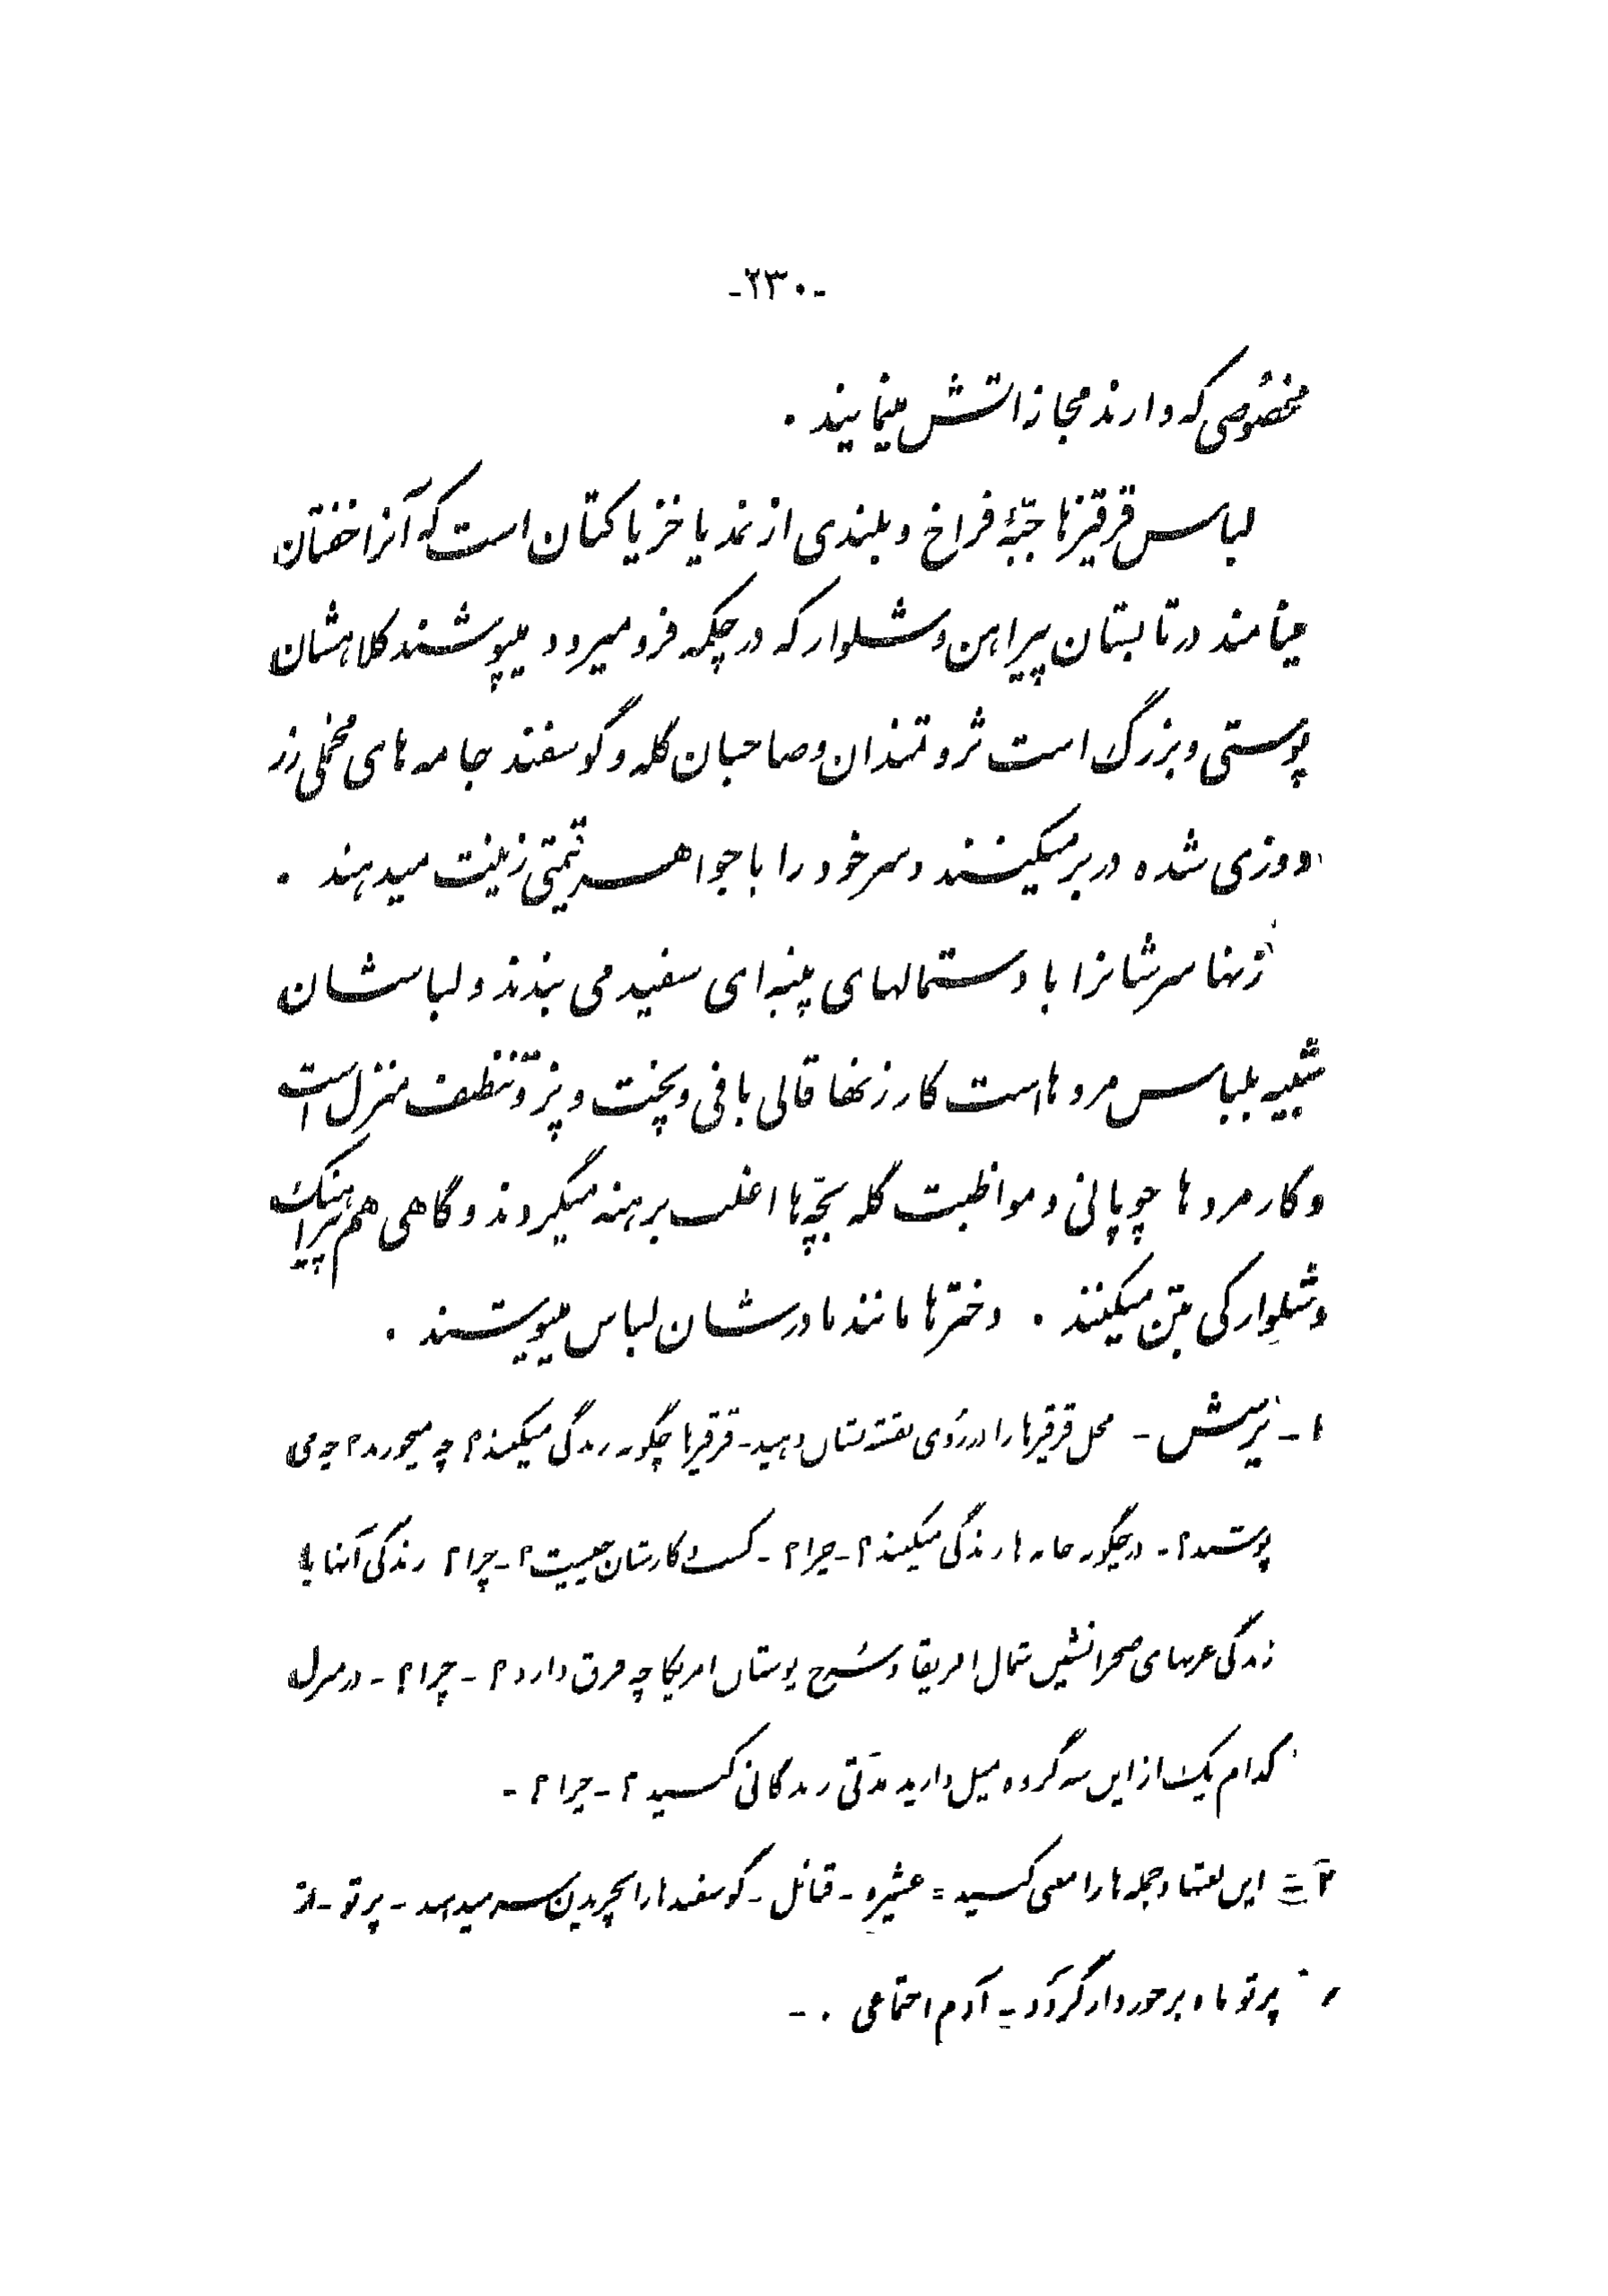 -۲۳۰-
مخصوصی که دارند مجازاتش مینمایند .
لباس قرقیزها جبّهٔ فراخ و بلندی از نمد یا خز یا کتان است که آنرا خفتان
مینامند در تابستان پیراهن و شلوار که در چکمه فرو میرود میپوشند کلاهشان
پوستی و بزرگ است ثروتمندان و صاحبان گله و گوسفند جامه های مخملی زر
دوزی شده در بر میکنند و سر خود را با جواهر قیمتی زینت میدهند .
زنها سرشانرا با دستمالهای پنبه ای سفید می بندند و لباسشان
شبیه بلباس مردهاست کار زنها قالی بافی و پخت و پز و تنظف منزل است
و کار مردها چوپانی و مواظبت گله بچّه ها اغلب برهنه میگردند و گاهی هم پیراهنک
و شلوارکی بتن میکنند . دخترها مانند مادرشان لباس میپوشند .
۱- پرسش - محل قرقیزها را در روی نقشه نشان دهید - قرقیزها چگونه زندگی میکنند؟ چه میخورند؟ چه می
پوشند؟ - در چگونه خانه ها زندگی میکنند؟ - چرا؟ - کسب و کارشان چیست؟ - چرا؟ زندگی آنها با
زندگی عربهای صحرا نشین شمال افریقا و سُرخ پوستان امریکا چه فرق دارد؟ - چرا؟ - در منزل
کدام یک از این سه گروه میل دارید مدّتی زندگانی کنید؟ - چرا؟ -
۲ = این لغتها و جمله ها را معنی کنید = عشیره - قبائل - گوسفندها را بچریدن سر میدهند - پرتو - از
پرتو ماه برخوردار گردد - آدم اجتماعی . -